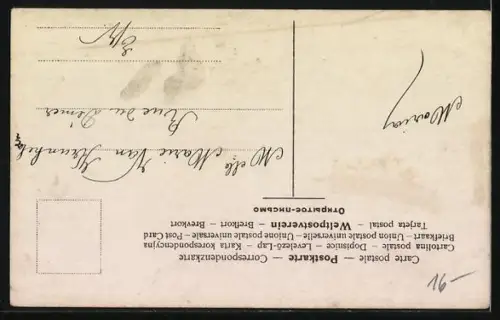 Carte postale — Postkarte — Correspondenzkarte
Cartolina postale — Dopisnice — Levelező-Lap — Karta korespondencyjna
Briefkaart - Union postale universelle - Unione postale universale - Post Card
Tarjeta postal — Weltpostverein — Brefkort — Brevkort
Открытое-письмо
Maria
Melle Marie Van
Rue du Démer
16-